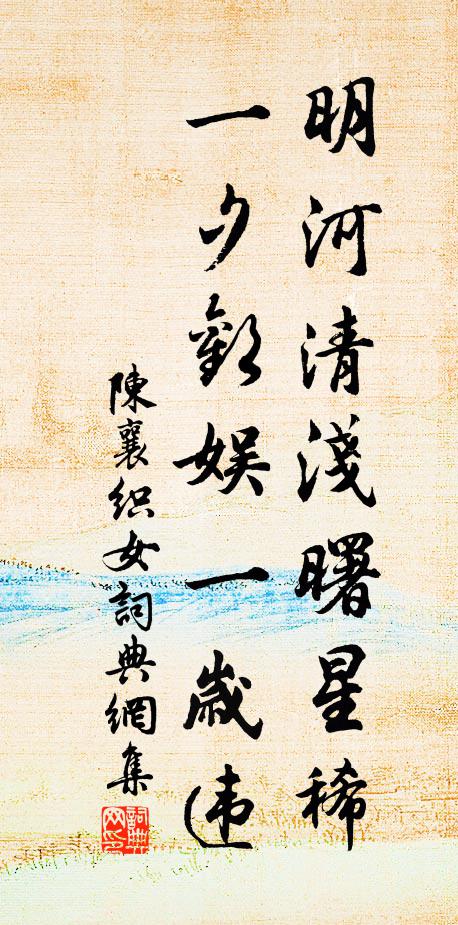 明河清淺曙星稀
一夕歡娛一歲违
陳襄织女詞典網集
詞典网印